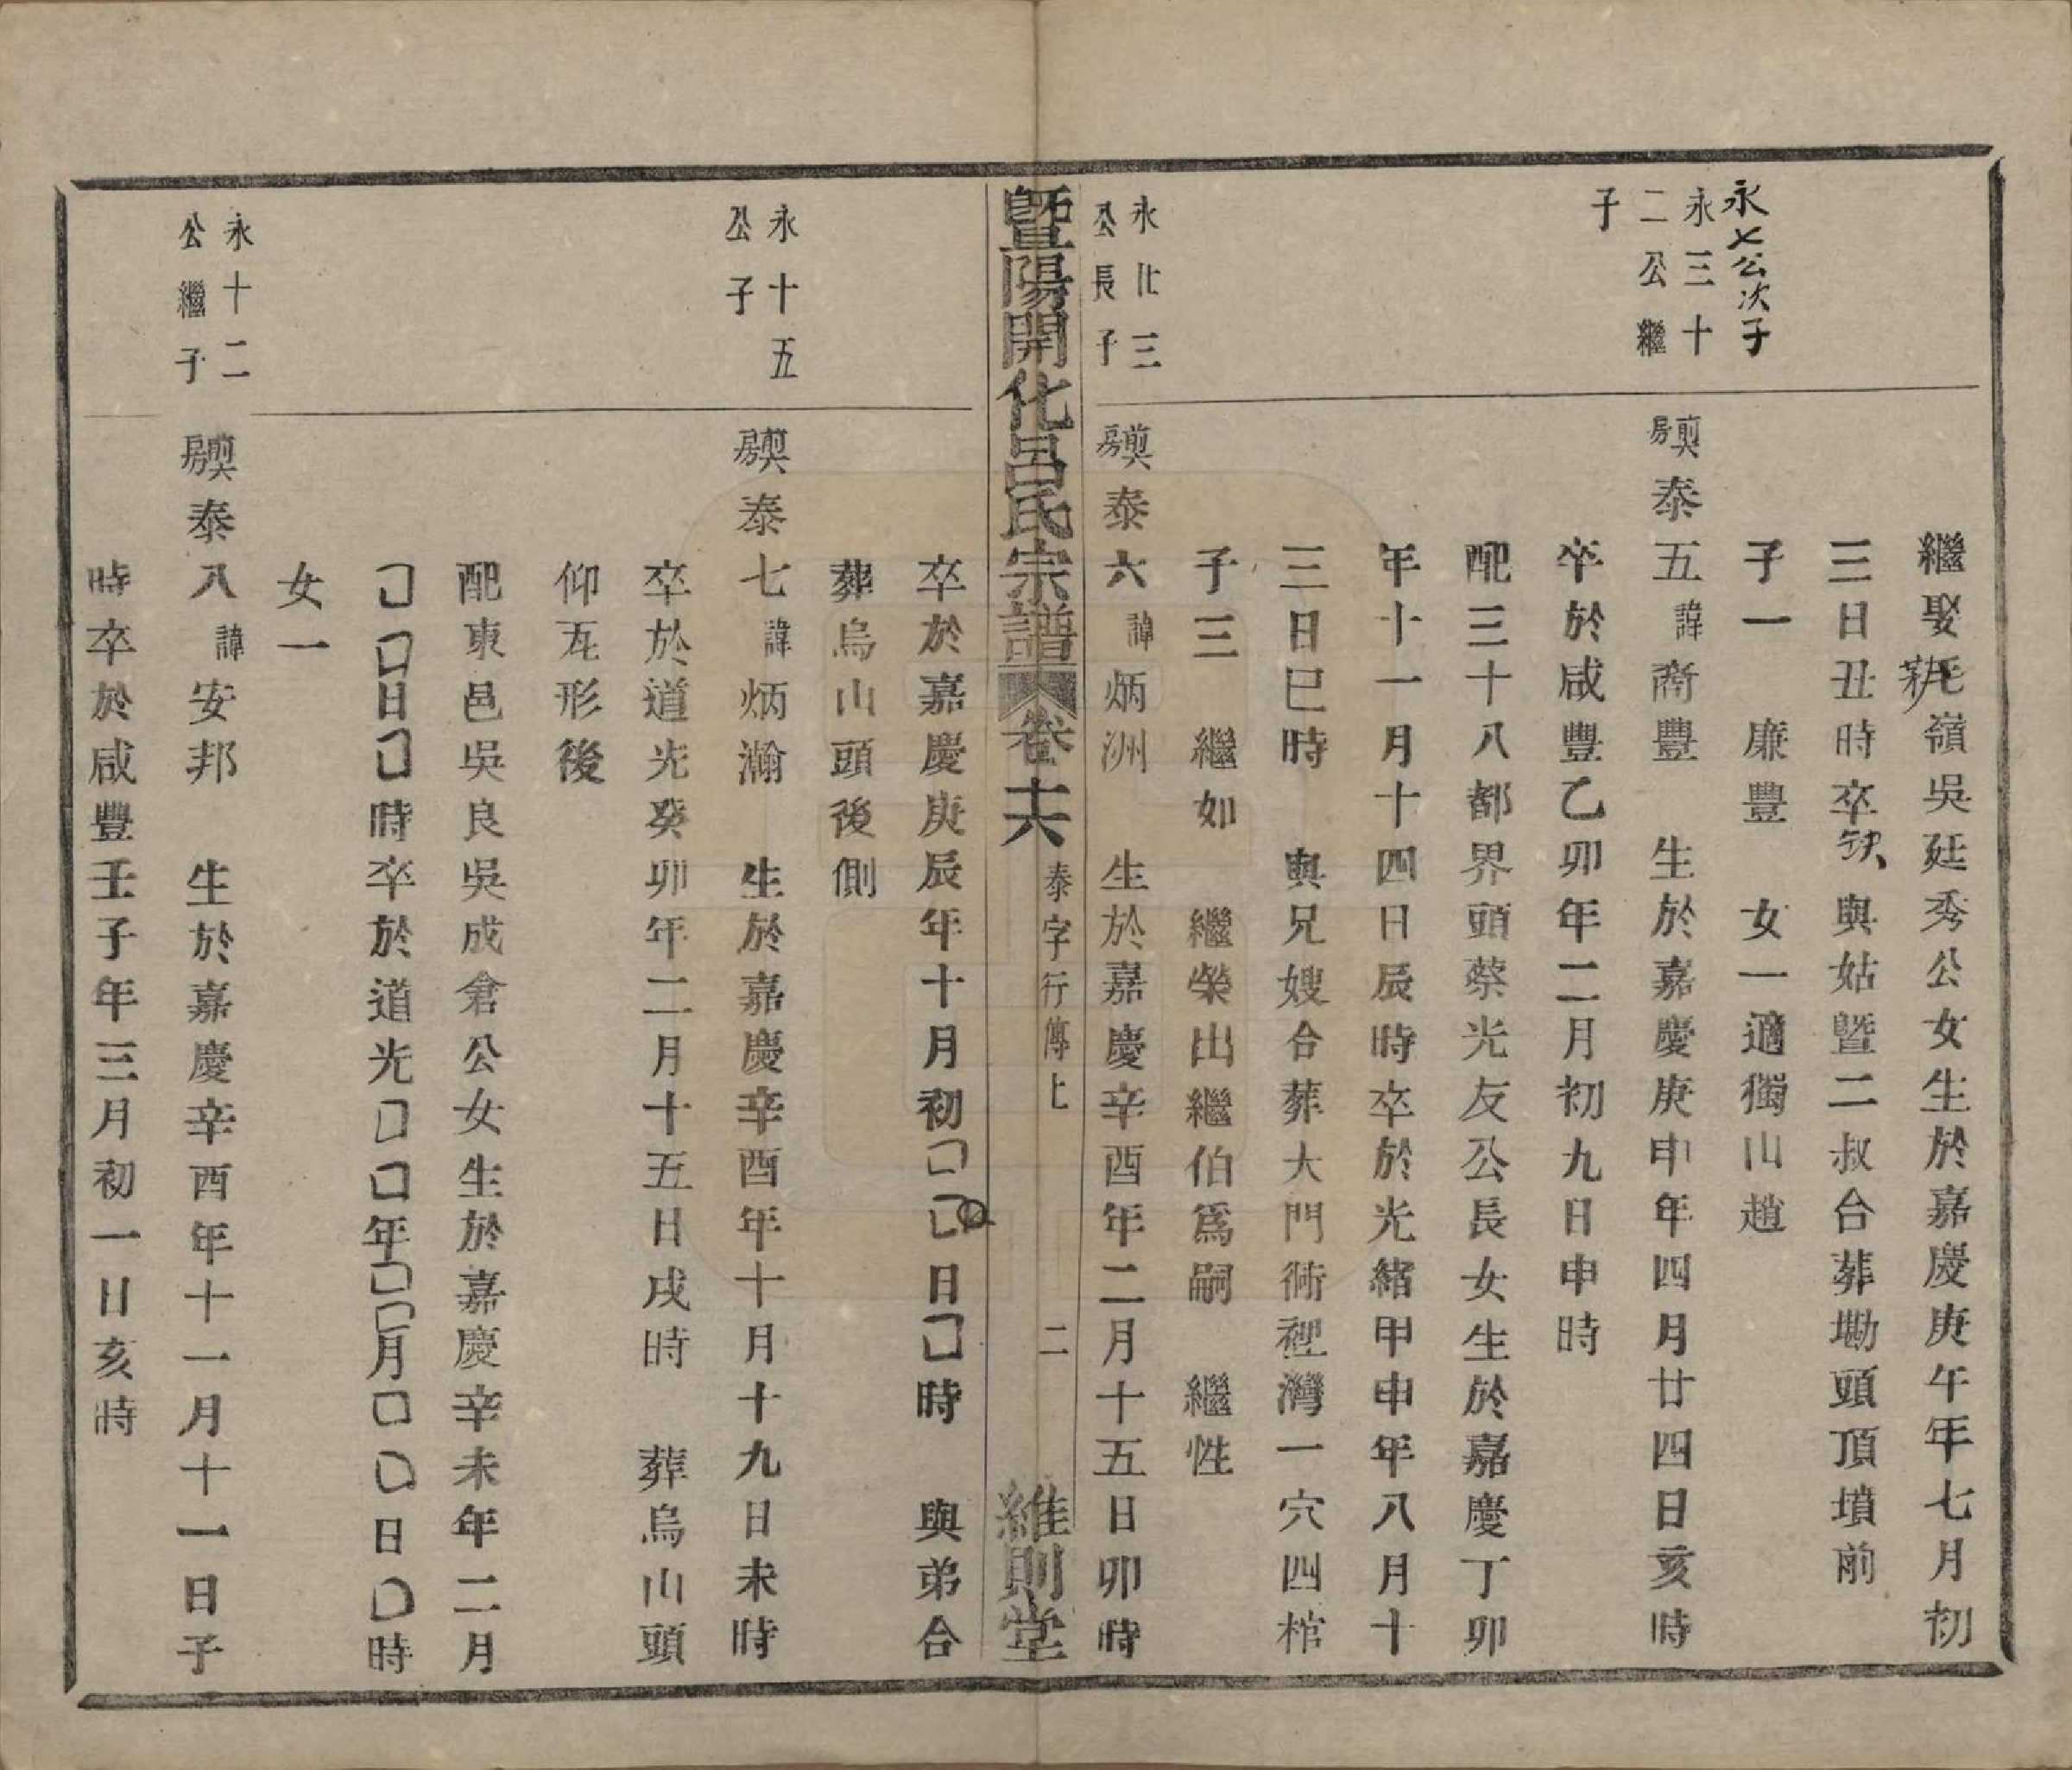 繼娶毛嶺吳延秀公女生於嘉慶庚午年七月初
三日丑時卒缺與姑暨二叔合葬墈頭頂墳前
子一 廉豐 女一適獨山趙
永七公次子
永三十二公繼子
巽房泰五諱裔豐 生於嘉慶庚申年四月廿四日亥時
卒於咸豐乙卯年二月初九日申時
配三十八都界頭蔡光友公長女生於嘉慶丁卯
年十一月十四日辰時卒於光緒甲申年八月十
三日巳時 與兄嫂合葬大門衕裡灣一穴四棺
子三 繼如 繼榮出繼伯爲嗣 繼性
永化三公長子
巽房泰六諱炳洲 生於嘉慶辛酉年二月十五日卯時
暨陽開化呂氏宗譜 卷十六 泰字行傳上 二 維則堂
卒於嘉慶庚辰年十月初□□日□時 與弟合
葬烏山頭後側
永十五公子
巽房泰七諱炳瀚 生於嘉慶辛酉年十月十九日未時
卒於道光癸卯年二月十五日戌時 葬烏山頭
仰瓦形後
配東邑吳良吳成倉公女生於嘉慶辛未年二月
□□日□時卒於道光□□年□□月□□日□時
女一
永十二公繼子
巽房泰八諱安邦 生於嘉慶辛酉年十一月十一日子
時卒於咸豐壬子年三月初一日亥時